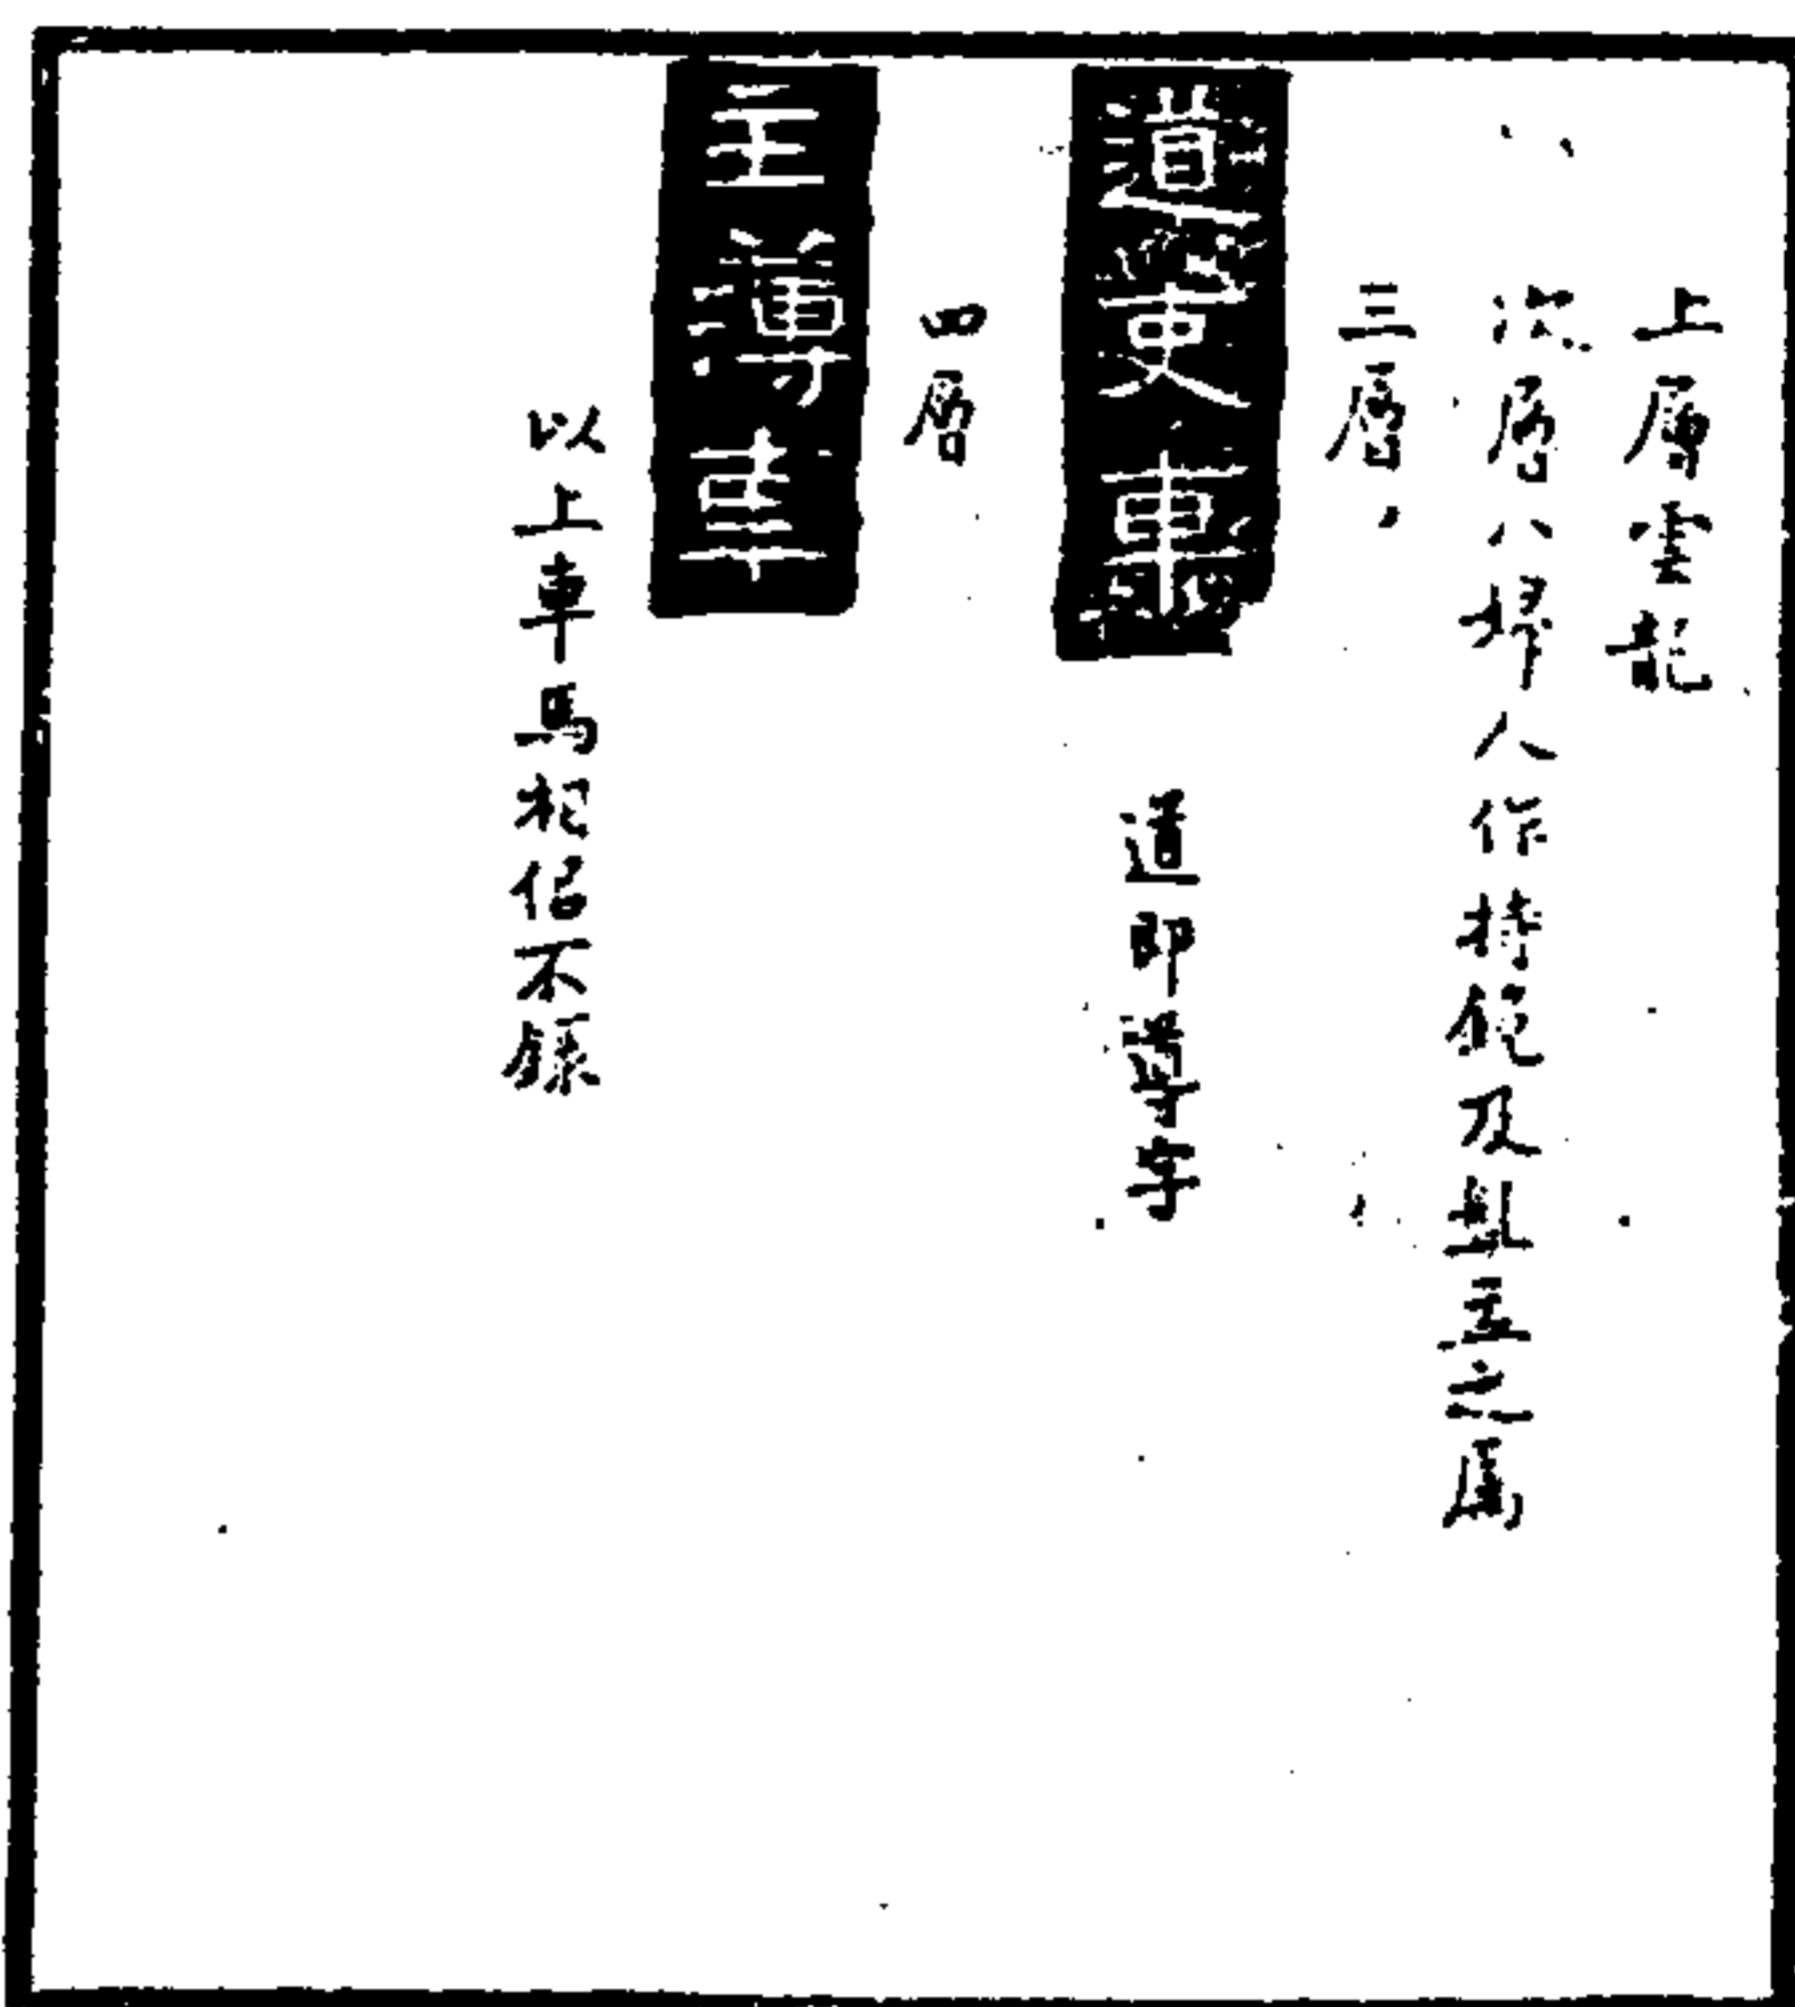 上層雲龍
次層八人作持及立之屬
三層
道吏車 道即導字
四層
主薄車
以上車馬相佀不錄